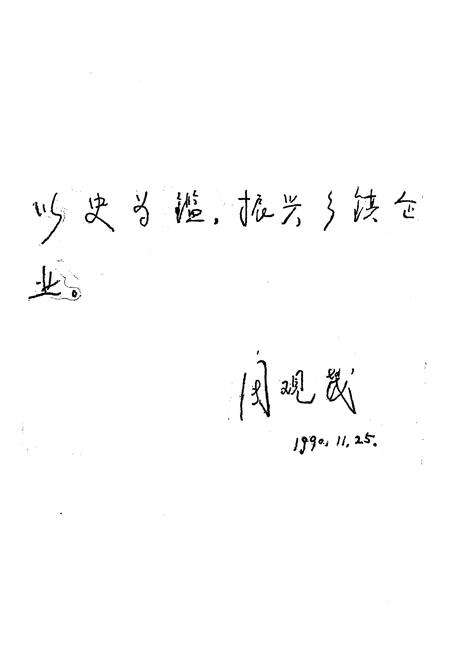 以史为鑑，振兴乡镇企
业。
周观
1990.11.25.